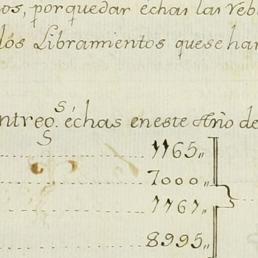 os, por quedar èchas las reb
los Libramientos que se han
ntreg.s èchas en este Año de
1165„
7000„
1767„
8995„